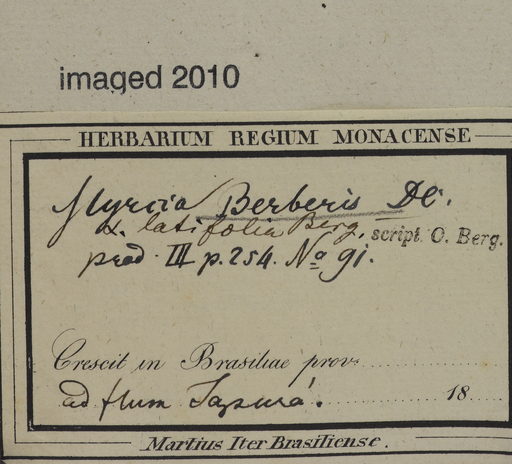 imaged 2010
HERBARIUM REGIUM MONACENSE
Myrcia Berberis DC.
α. latifolia Berg. script. O. Berg.
prod. III p. 254. No 91.
Crescit in Brasiliae prov.
ad flum Japurá. 18
Martius Iter Brasiliense.